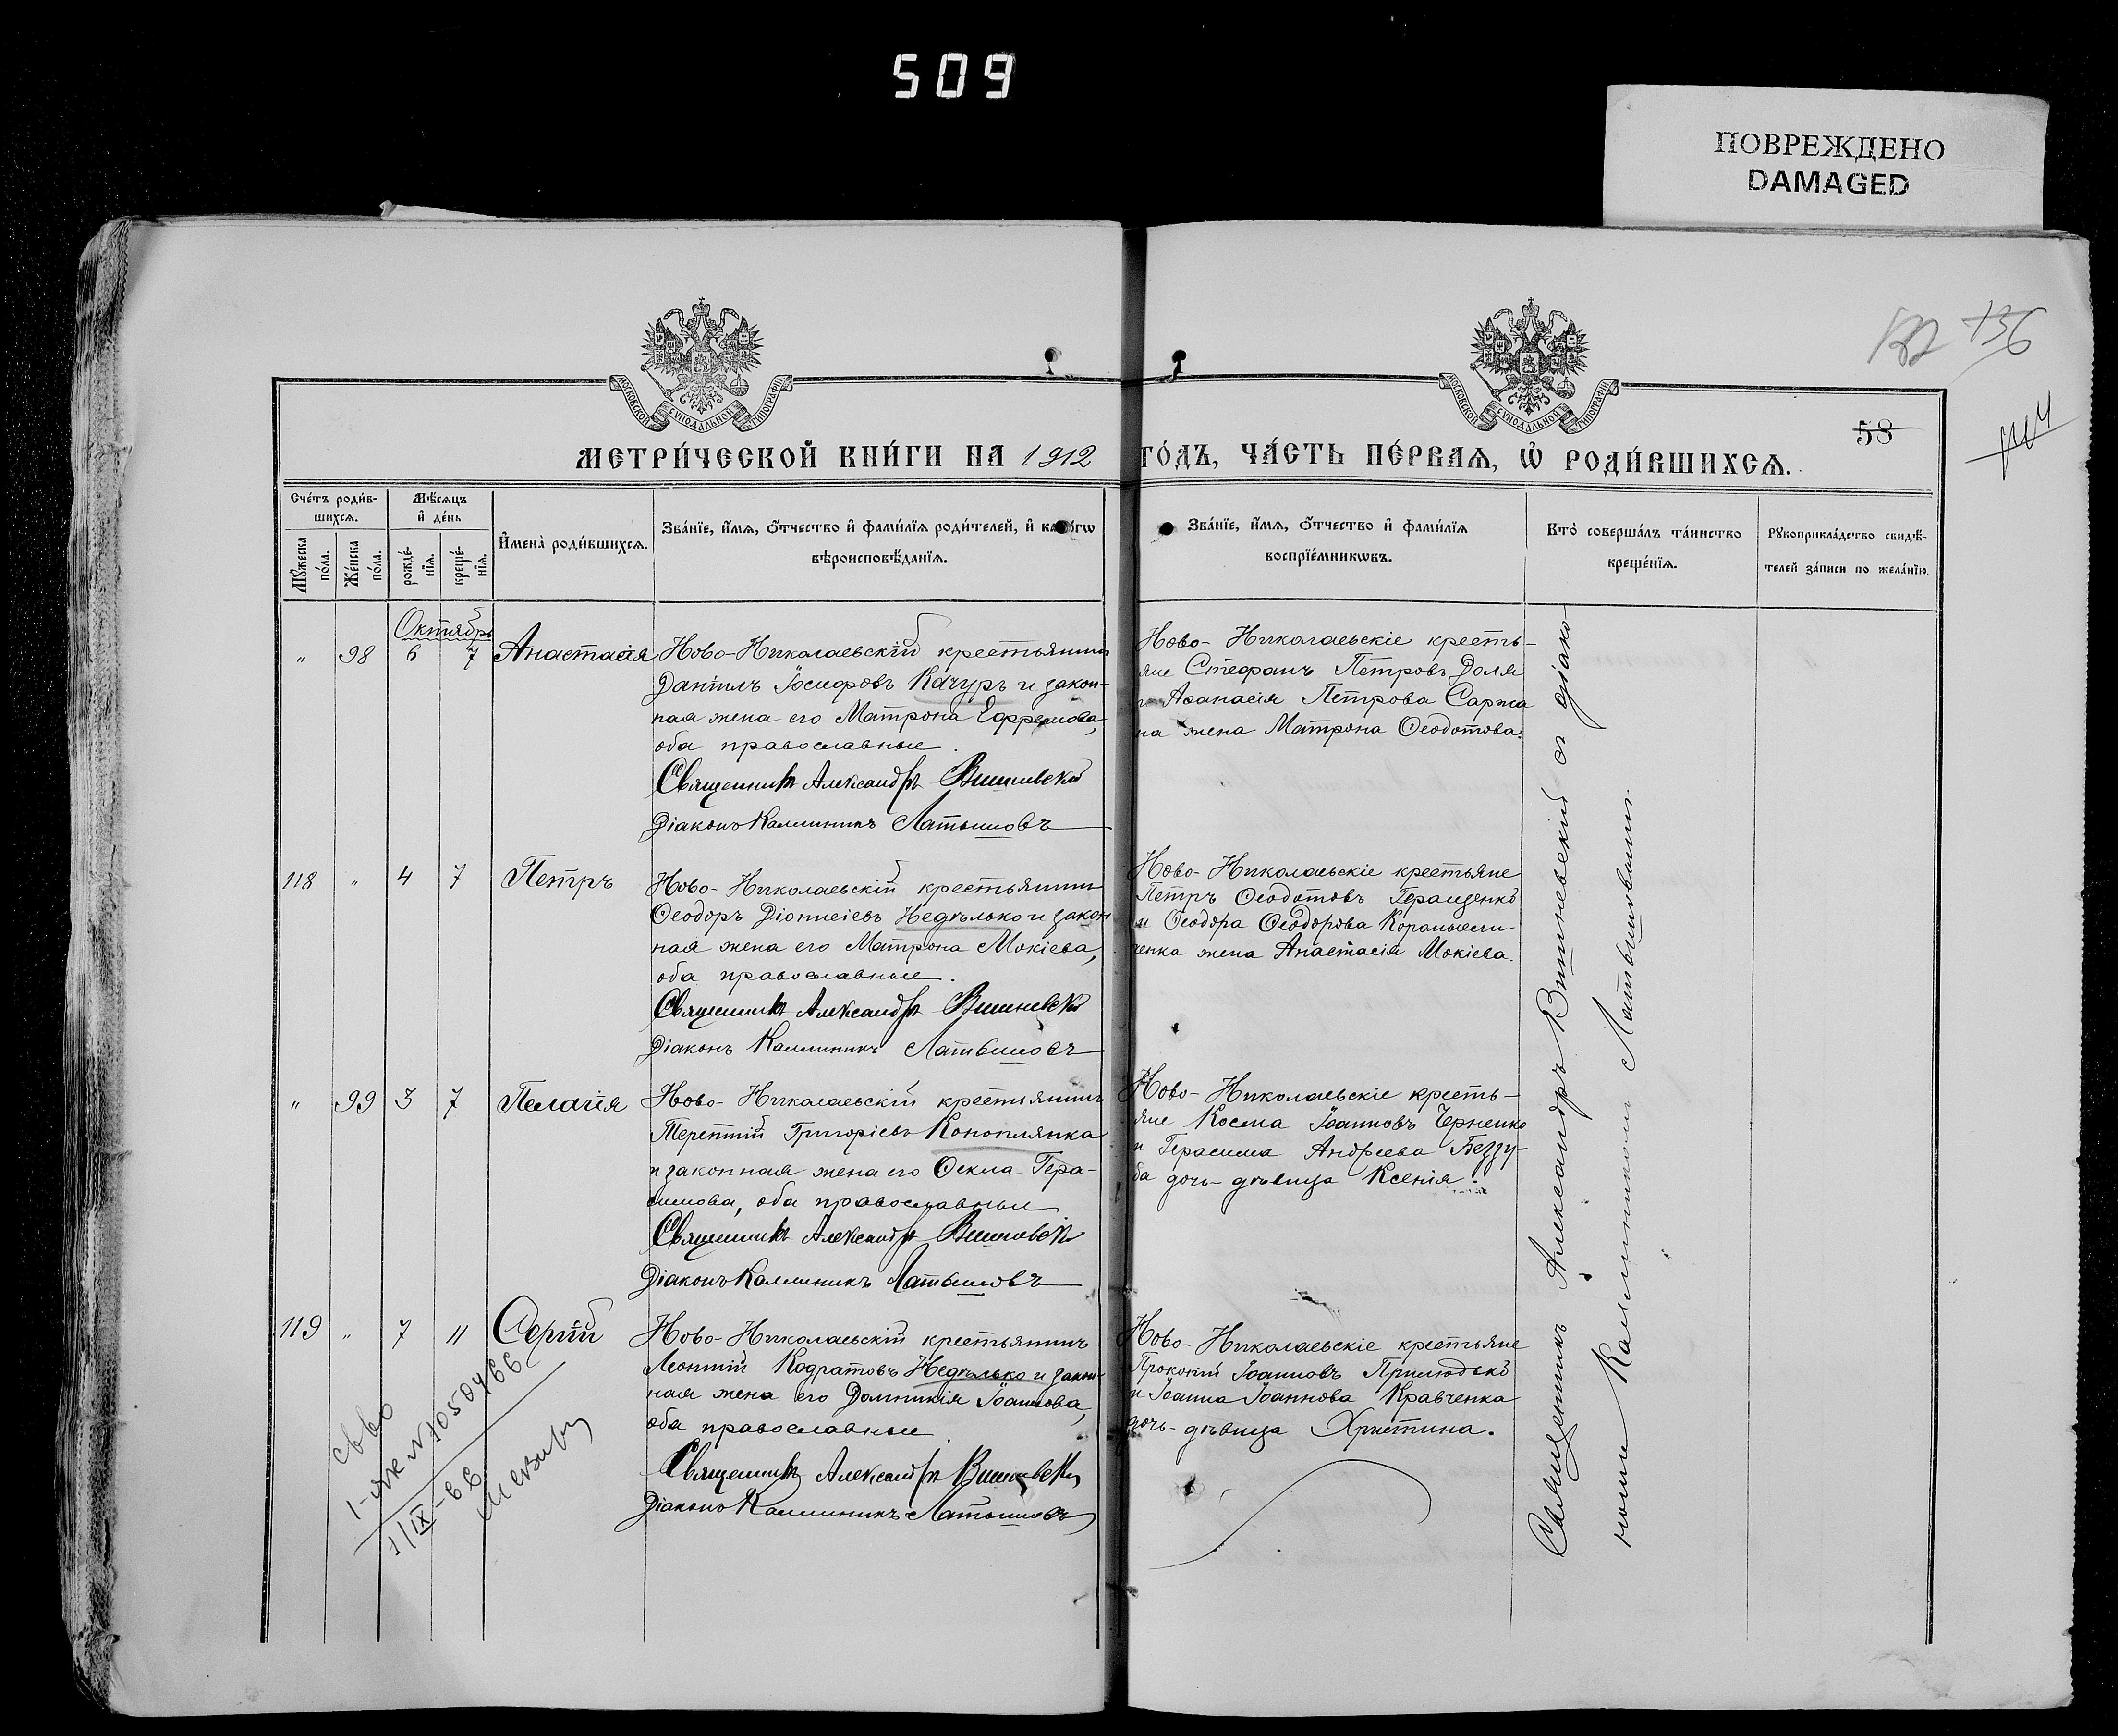 509
ПОВРЕЖДЕНО
DAMAGED
132 136
58
МОСКОВСКОЙ СУНОДАЛЬНОЙ ТИПОГРАФІИ
МОСКОВСКОЙ СУНОДАЛЬНОЙ ТИПОГРАФІИ
МЕТРИ́ЧЕСКОЙ КНИ́ГИ НА 1912 ГО́ДЪ, ЧА́СТЬ ПЕ́РВАѦ, Ѡ҆ РОДИ́ВШИХСѦ.
Сче́тъ роди́в-
шихсѧ.
Мѣ́сѧцъ
и҆ де́нь
Мꙋ́жеска
по́ла.
Же́нска
по́ла.
рожде́-
нїѧ.
креще́-
нїѧ.
И҆мена̀ роди́вшихсѧ.
Зва́нїе, и҆́мѧ, ѻ҆́тчество и҆ фами́лїѧ роди́телей, и҆ како́гѡ
вѣроисповѣ́данїѧ.
Зва́нїе, и҆́мѧ, ѻ҆́тчество и҆ фами́лїѧ
воспрїе́мникѡвъ.
Кто̀ соверша́лъ та́инство
креще́нїѧ.
Рꙋкоприкла́дство свидѣ́-
телей за́писи по жела́нїю.
Октябрь
" 98 6 7 Анастасія
Ново-Николаевскій крестьянинъ
Даніилъ Іосифовъ Качуръ и закон-
ная жена его Матрона Ефремова,
оба православные.
Священникъ Александръ Вишневскій
Діаконъ Каллиникъ Латышовъ
Ново-Николаевскіе кресть-
яне Стефанъ Петровъ Доля
и Аѳанасія Петрова Саржа
на жена Матрона Ѳеодотова.
118 " 4 7 Петръ
Ново-Николаевскій крестьянинъ
Ѳеодоръ Діонисіевъ Недѣлько и закон
ная жена его Матрона Мокіева,
оба православные.
Священникъ Александръ Вишневскій
Діаконъ Каллиникъ Латышовъ
Ново-Николаевскіе крестьяне
Петръ Ѳеодотовъ Геращенко
и Ѳеодора Ѳеодорова
ченка жена Анастасія Мокіева.
" 99 3 7 Пелагія
Ново-Николаевскій крестьянинъ
Терентій Григоріевъ Коноплянка
и законная жена его Ѳекла Гера-
симова, оба православные
Священникъ Александръ Вишневскій
Діаконъ Каллиникъ Латышовъ
Ново-Николаевскіе кресть-
яне Косма Іоанновъ Черненко
и Герасима Андреева Беззу-
ба дочь-дѣвица Ксенія.
119 " 7 11 Сергій
Ново-Николаевскій крестьянинъ
Леонтій Кодратовъ Недѣлько и закон-
ная жена его Домникія Іоаннова,
оба православные
Священникъ Александръ Вишневскій
Діаконъ Каллиникъ Латышовъ
Ново-Николаевскіе крестьяне
Прокопій Іоанновъ Прилюдько
и Іоанна Іоаннова Кравченка
дочь-дѣвица Христина.
Священникъ Александръ Вишневскій съ діако-
номъ Каллиникомъ Латышовымъ.
1/IX-66